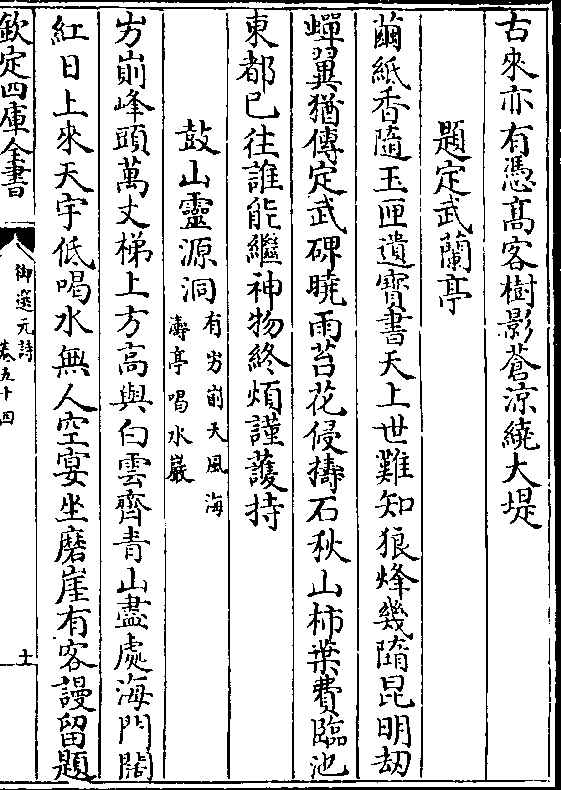 古來亦有憑髙客樹影蒼凉繞大堤
題定武蘭亭
繭紙香隨玉匣遺寶書天上世難知狼烽幾隨昆明刧
蟬翼猶傳定武碑曉雨苔花侵擣石秋山柿葉費臨池
東都已往誰能繼神物終煩謹䕶持
鼓山靈源洞有屴崱天風海濤亭喝水巖
屴崱峰頭萬丈梯上方高與白雲齊青山盡處海門闊
紅日上來天宇低喝水無人空宴坐磨崖有客謾留題
欽定四庫全書
御選元詩
卷五十四
十